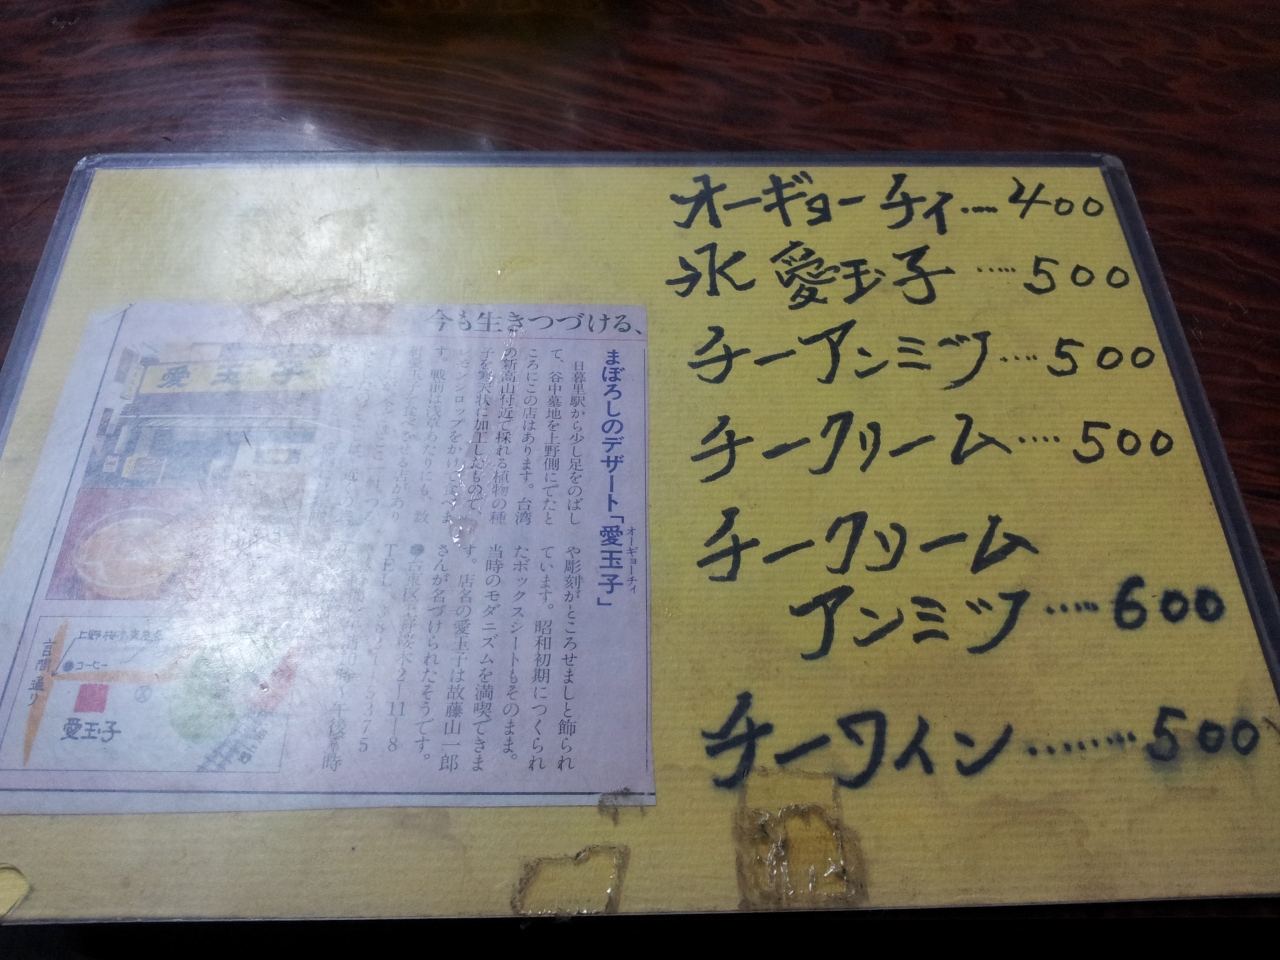 オーギョーチィ‥‥400
氷愛玉子‥‥500
チーアンミツ‥‥500
チークリーム‥‥500
チークリーム
アンミツ‥‥600
チーワイン‥‥‥‥500
今も生きつづける、
まぼろしのデザート「愛玉子」
オーギョーチィ
日暮里駅から少し足をのばし
て、谷中墓地を上野側にでたと
ころにこの店はあります。台湾
の新高山付近で採れる植物の種
子を寒天状に加工したもので、
や彫刻がところせましと飾られ
ています。昭和初期につくられ
たボックスシートもそのまま。
当時のモダニズムを満喫できま
す。店名の愛玉子は故藤山一郎
さんが名づけられたそうです。
2―11―8
愛玉子
コーヒー
言問通り
愛玉子